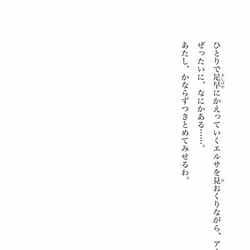 ひとりで足早にかえっていくエルサを見おくりながら、ア
ぜったいに、なにかある……。
あたし、かならずつきとめてみせるわ。